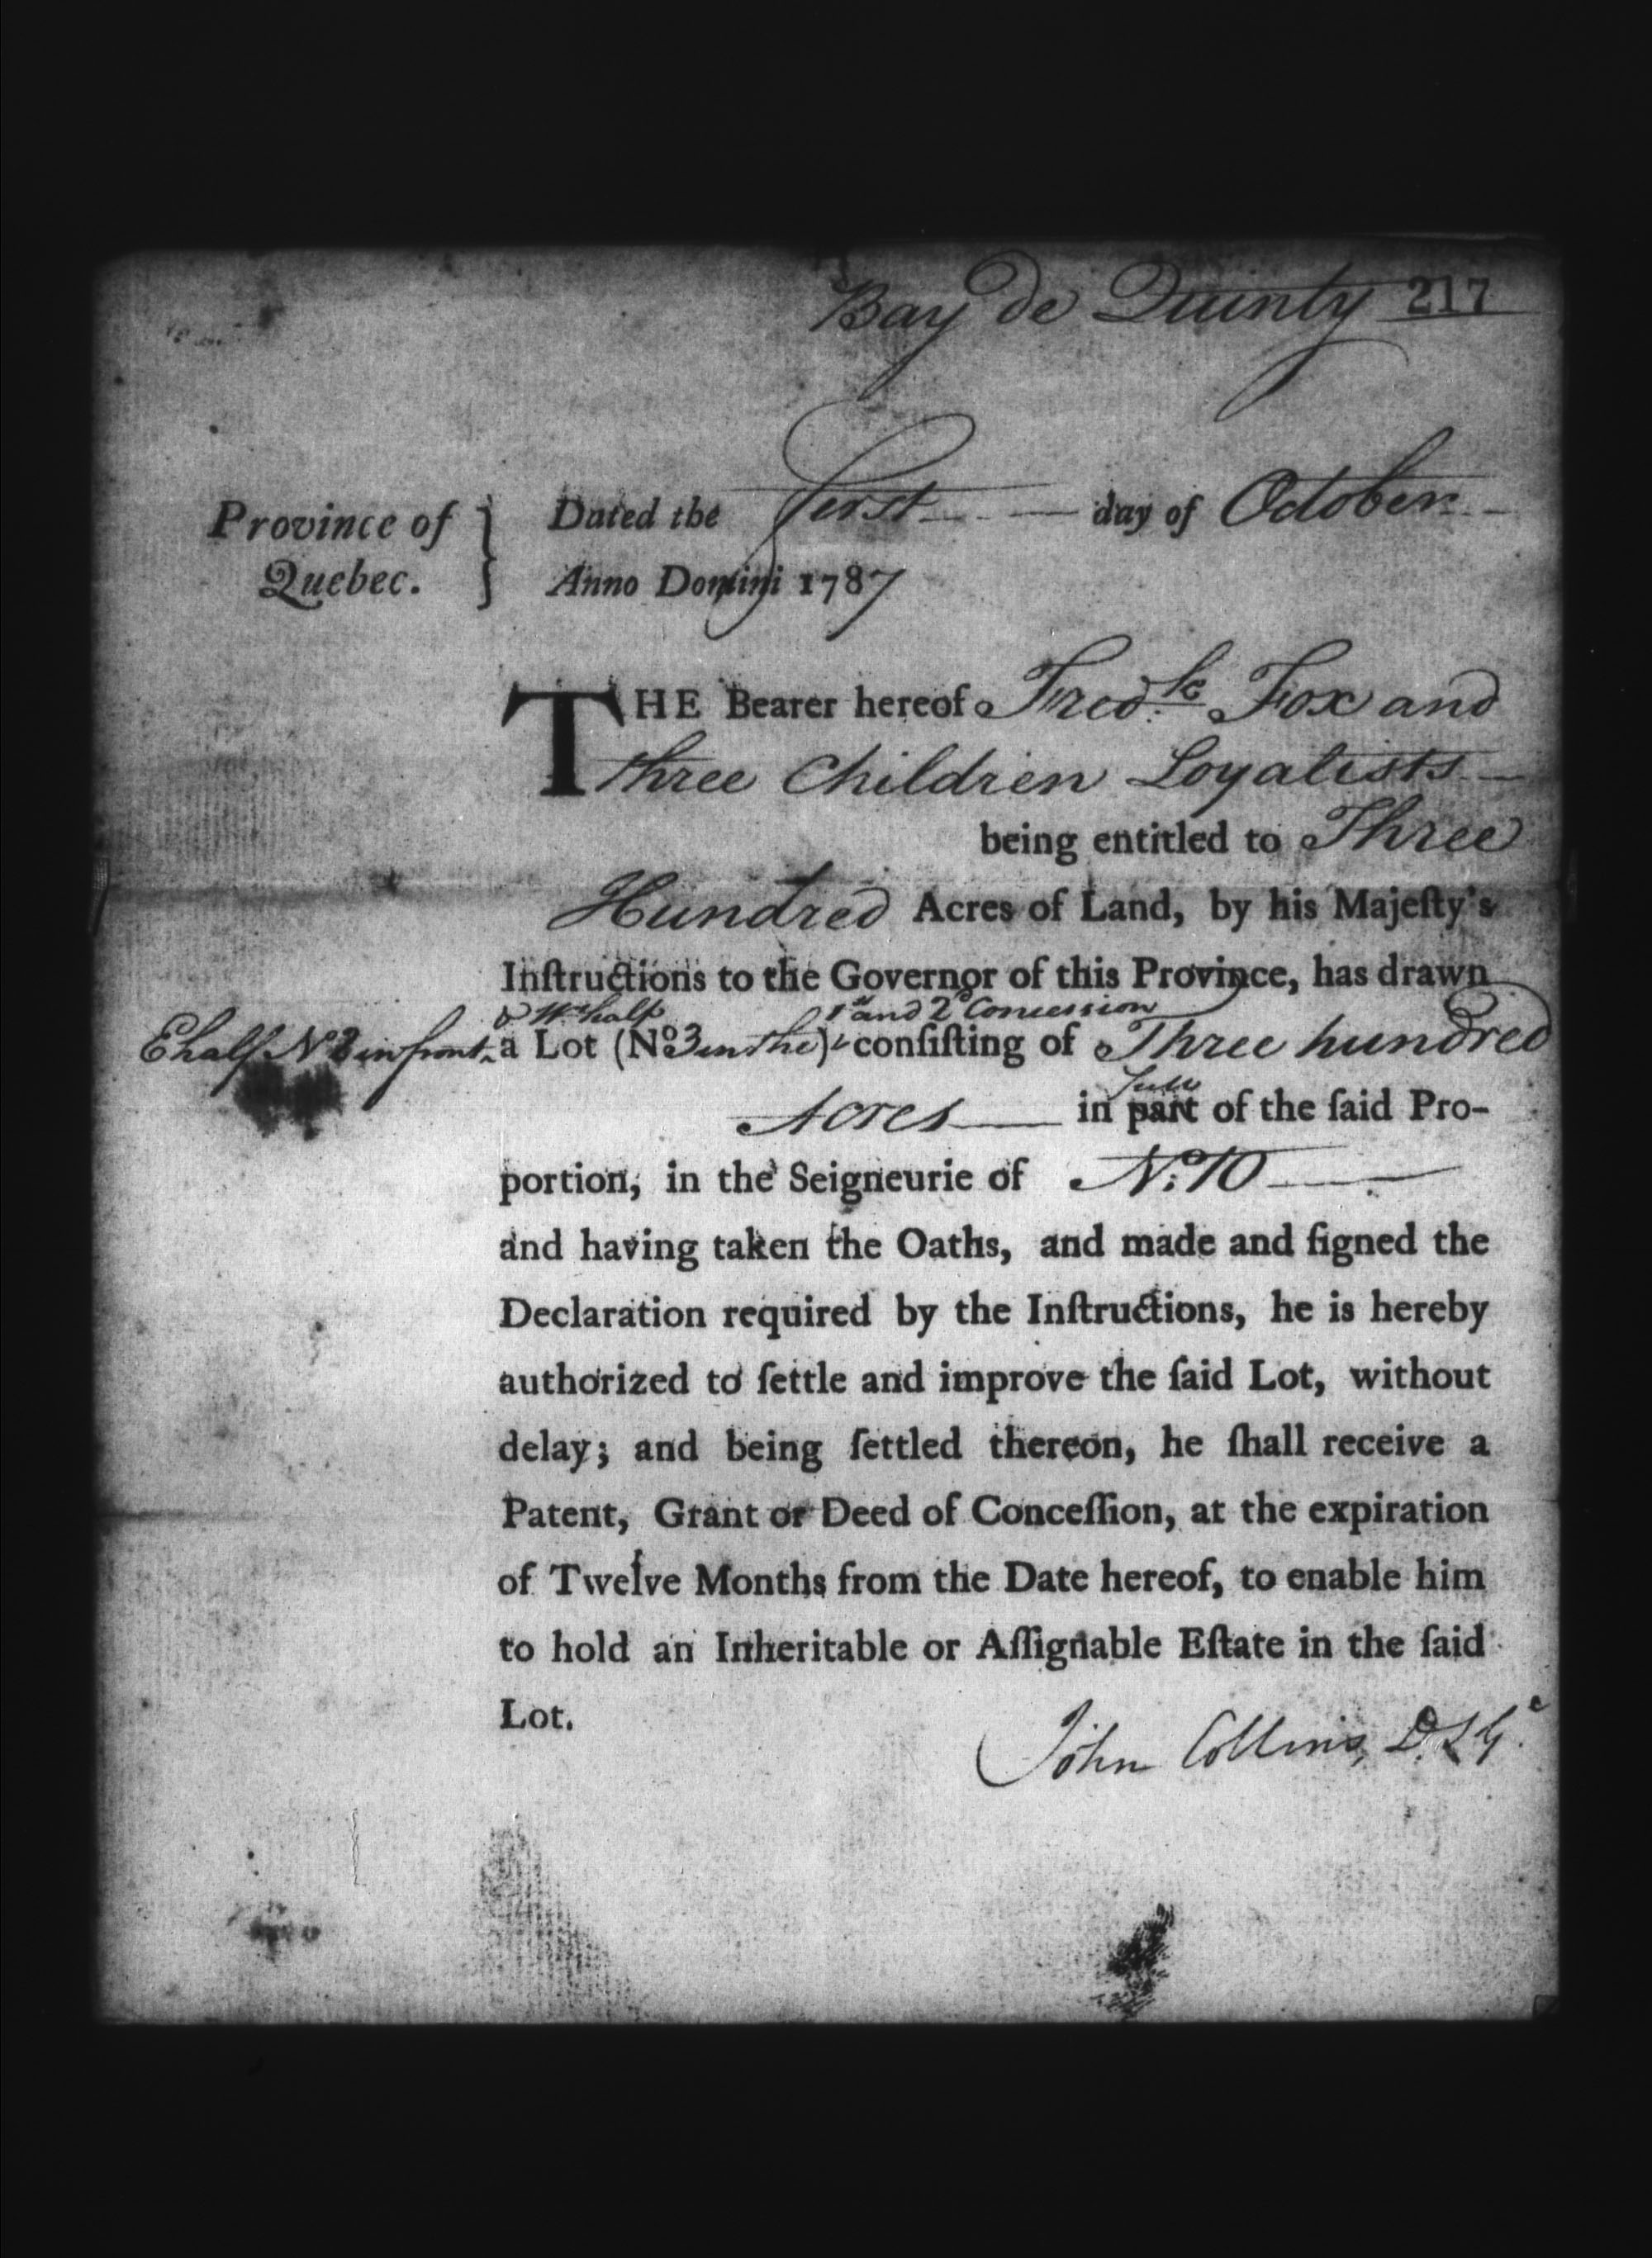 Bay de Quinty 217
Province of Quebec.
Dated the first day of October
Anno Domini 1787
THE Bearer hereof Fred.k Fox and
three Children Loyalists
being entitled to Three
Hundred Acres of Land, by his Majeſty's
Inſtructions to the Governor of this Province, has drawn
& W. half 1st and 2d Concession
E half No in front a Lot (No 3 in the) conſiſting of Three hundred
full
Acres in part of the ſaid Pro-
portion, in the Seigneurie of No. 10
and having taken the Oaths, and made and ſigned the
Declaration required by the Inſtructions, he is hereby
authorized to ſettle and improve the ſaid Lot, without
delay; and being ſettled thereon, he ſhall receive a
Patent, Grant or Deed of Conceſſion, at the expiration
of Twelve Months from the Date hereof, to enable him
to hold an Inheritable or Aſſignable Eſtate in the ſaid
Lot.
John Collins, D.S.G.